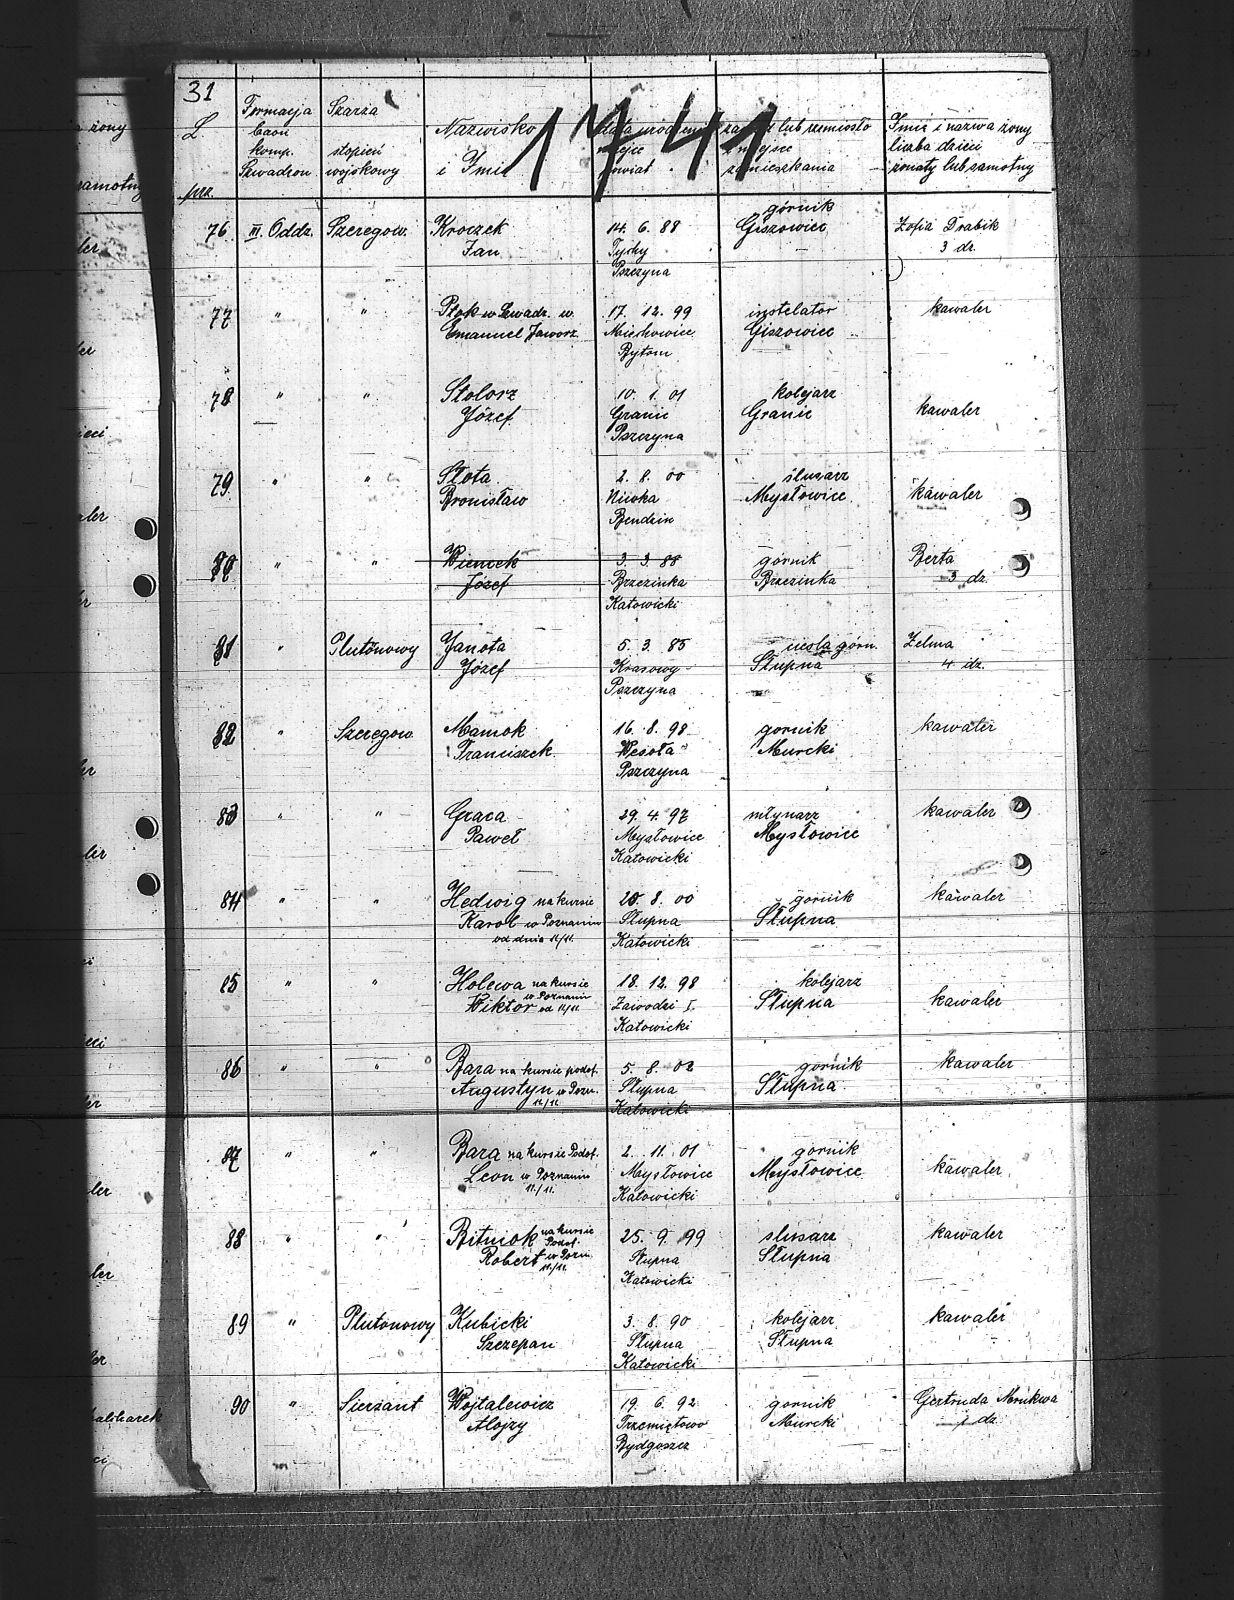 31
1741
L. prz.
Formacja baon komp. Szwadron
Szarża stopień wojskowy
Nazwisko i Imię
Data urodzenia miejsce powiat
zawód lub rzemiosło i miejsce zamieszkania
Imię i nazwa żony liczba dzieci żonaty lub samotny
76 III. Oddz. Szeregow. Kroczek 14. 6. 88 górnik Zofia Drabik
Jan Tychy Giszowiec 3 dz.
Pszczyna
77 " " Ptok w Szwadr. w 17. 12. 99 instelator kawaler
Emanuel Jaworz. Miechowice Giszowiec
Bytom
78 " " Stolorz 10. 1. 01 kolejarz kawaler
Józef Granic Granic
Pszczyna
79 " " Słota 2. 8. 00 ślusarz kawaler
Bronisław Niwka Mysłowice
Bendzin
80 " " Wieniek 3. 3. 88 górnik Berta
Józef Brzezinka Brzezinka 3 dz.
Katowicki
81 " Plutonowy Janota 5. 3. 85 cieśla górn. Zelma
Józef Krasowy Słupna 4 dz.
Pszczyna
82 " Szeregow. Mamok 16. 8. 98 gornik kawaler
Franciszek Wesoła Murcki
Pszczyna
83 " " Graca 29. 4. 97 młynarz kawaler
Paweł Mysłowice Mysłowice
Katowicki
84 " " Hedwig na kursie 20. 8. 00 gornik kawaler
Karol w Poznaniu Słupna Słupna
od dnia 11/11. Katowicki
85 " " Holewa na kursie 18. 12. 98 kolejarz kawaler
Wiktor w Poznaniu od 11/11. Zawodzi I. Słupna
Katowicki
86 " " Bara na kursie podof. 5. 8. 02 gornik kawaler
Augustyn w Pozn. Słupna Słupna
11/11. Katowicki
87 " " Bara na kursie Podof. 2. 11. 01 gornik kawaler
Leon w Poznaniu Mysłowice Mysłowice
11/11. Katowicki
88 " " Bitniok na kursie Podof. 25. 9. 99 slusarz kawaler
Robert w Pozn. Słupna Słupna
11/11. Katowicki
89 " Plutonowy Kubicki 3. 8. 90 kolejarz kawaler
Szczepan Słupna Słupna
Katowicki
90 " Sierzant Wojtalewicz 19. 6. 92 gornik Gertruda Mrukwa
Alojzy Trzemiętowo Murcki 1 dz.
Bydgoszcz